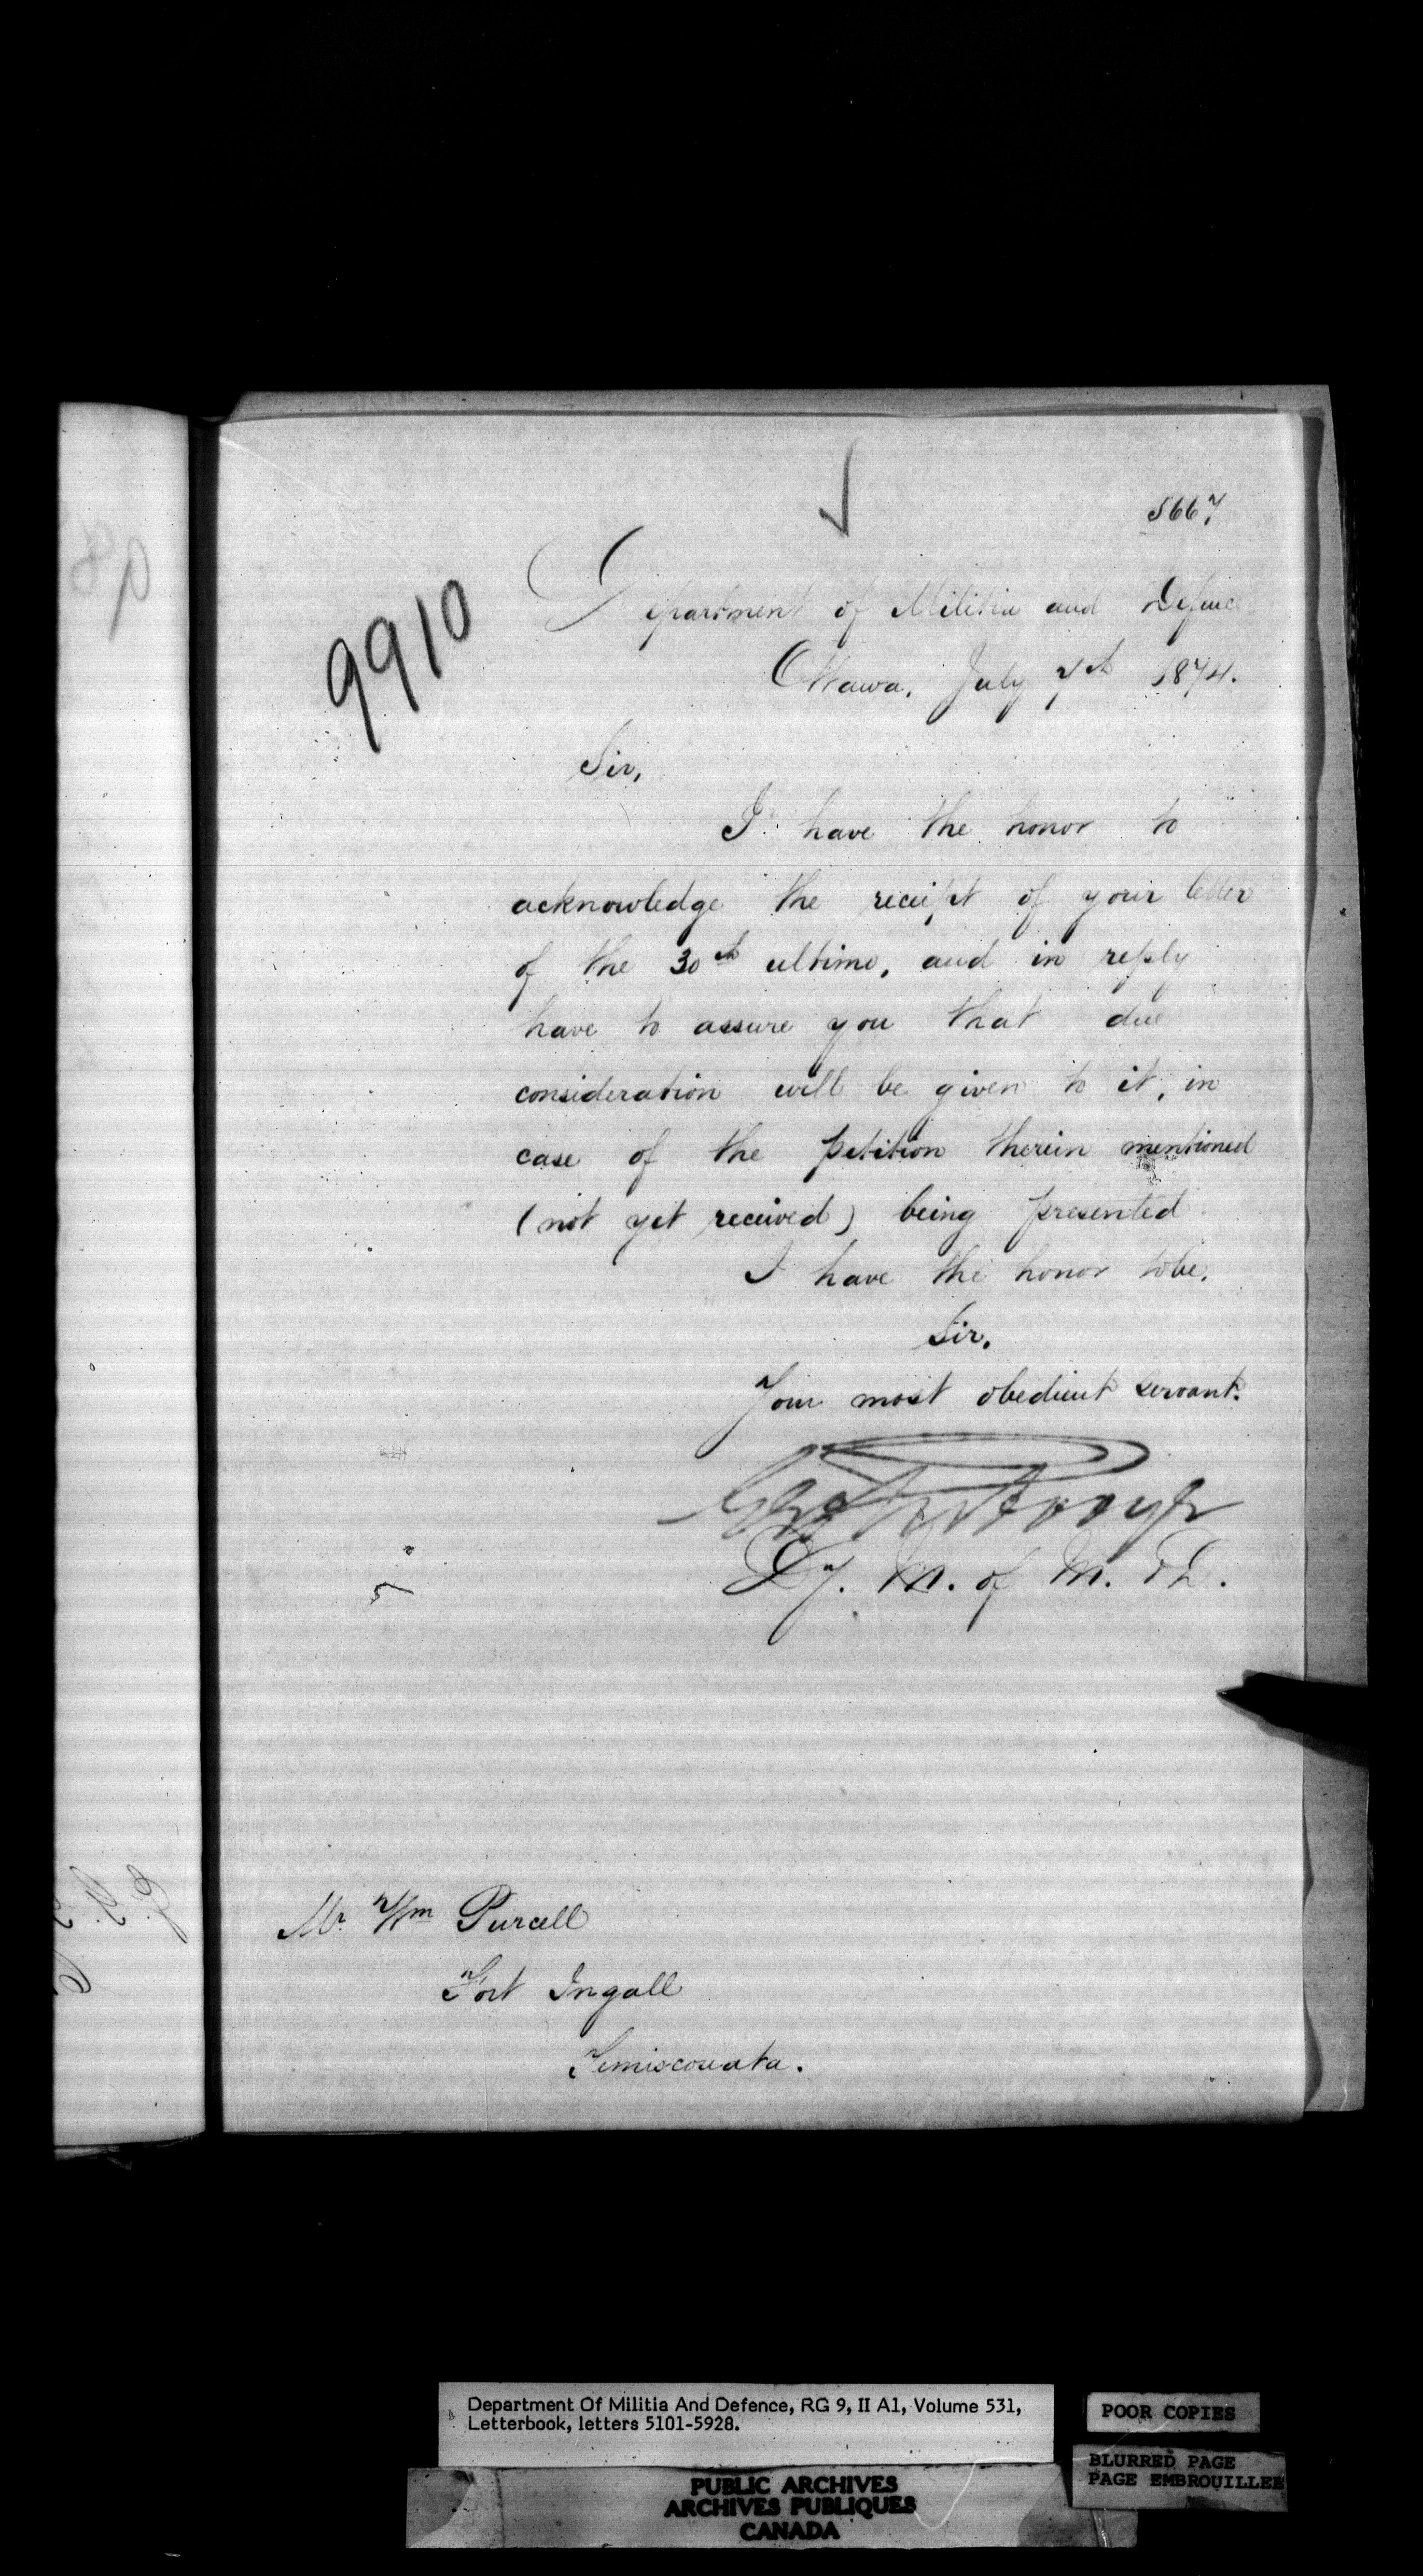 5667
9910
Department of Militia and Defence
Ottawa, July 7th 1874.
Sir,
I have the honor to
acknowledge the receipt of your letter
of the 30th ultimo, and in reply
have to assure you that due
consideration will be given to it, in
case of the petition therein mentioned
(not yet received) being presented
I have the honor to be,
Sir,
Your most obedient servant.
Dy. M. of M. & D.
Mr. Wm Purcell
Fort Ingall
Temiscouata.
Department Of Militia And Defence, RG 9, II A1, Volume 531,
Letterbook, letters 5101-5928.
POOR COPIES
BLURRED PAGE
PAGE EMBROUILLEE
PUBLIC ARCHIVES
ARCHIVES PUBLIQUES
CANADA